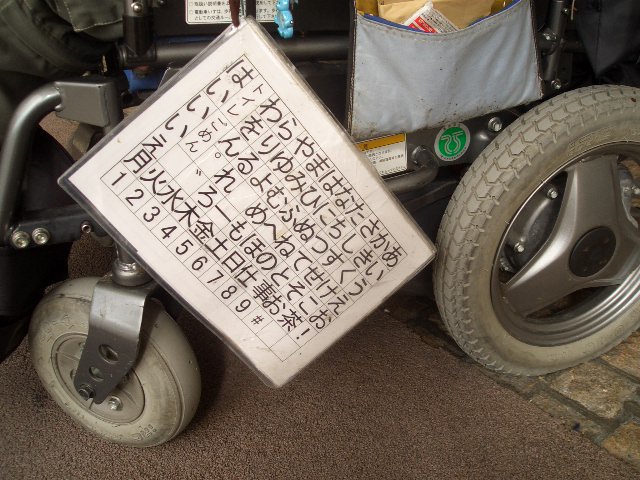 あいうえお
かきくけこ
さしすせそ
たちつてと
なにぬねの
はひふへほ
まみむめも
やゆよー
らりるれろ
わをん。゛
トイレ ごめん
はい いいえ
月火水木金土日仕事お茶!
1 2 3 4 5 6 7 8 9 #